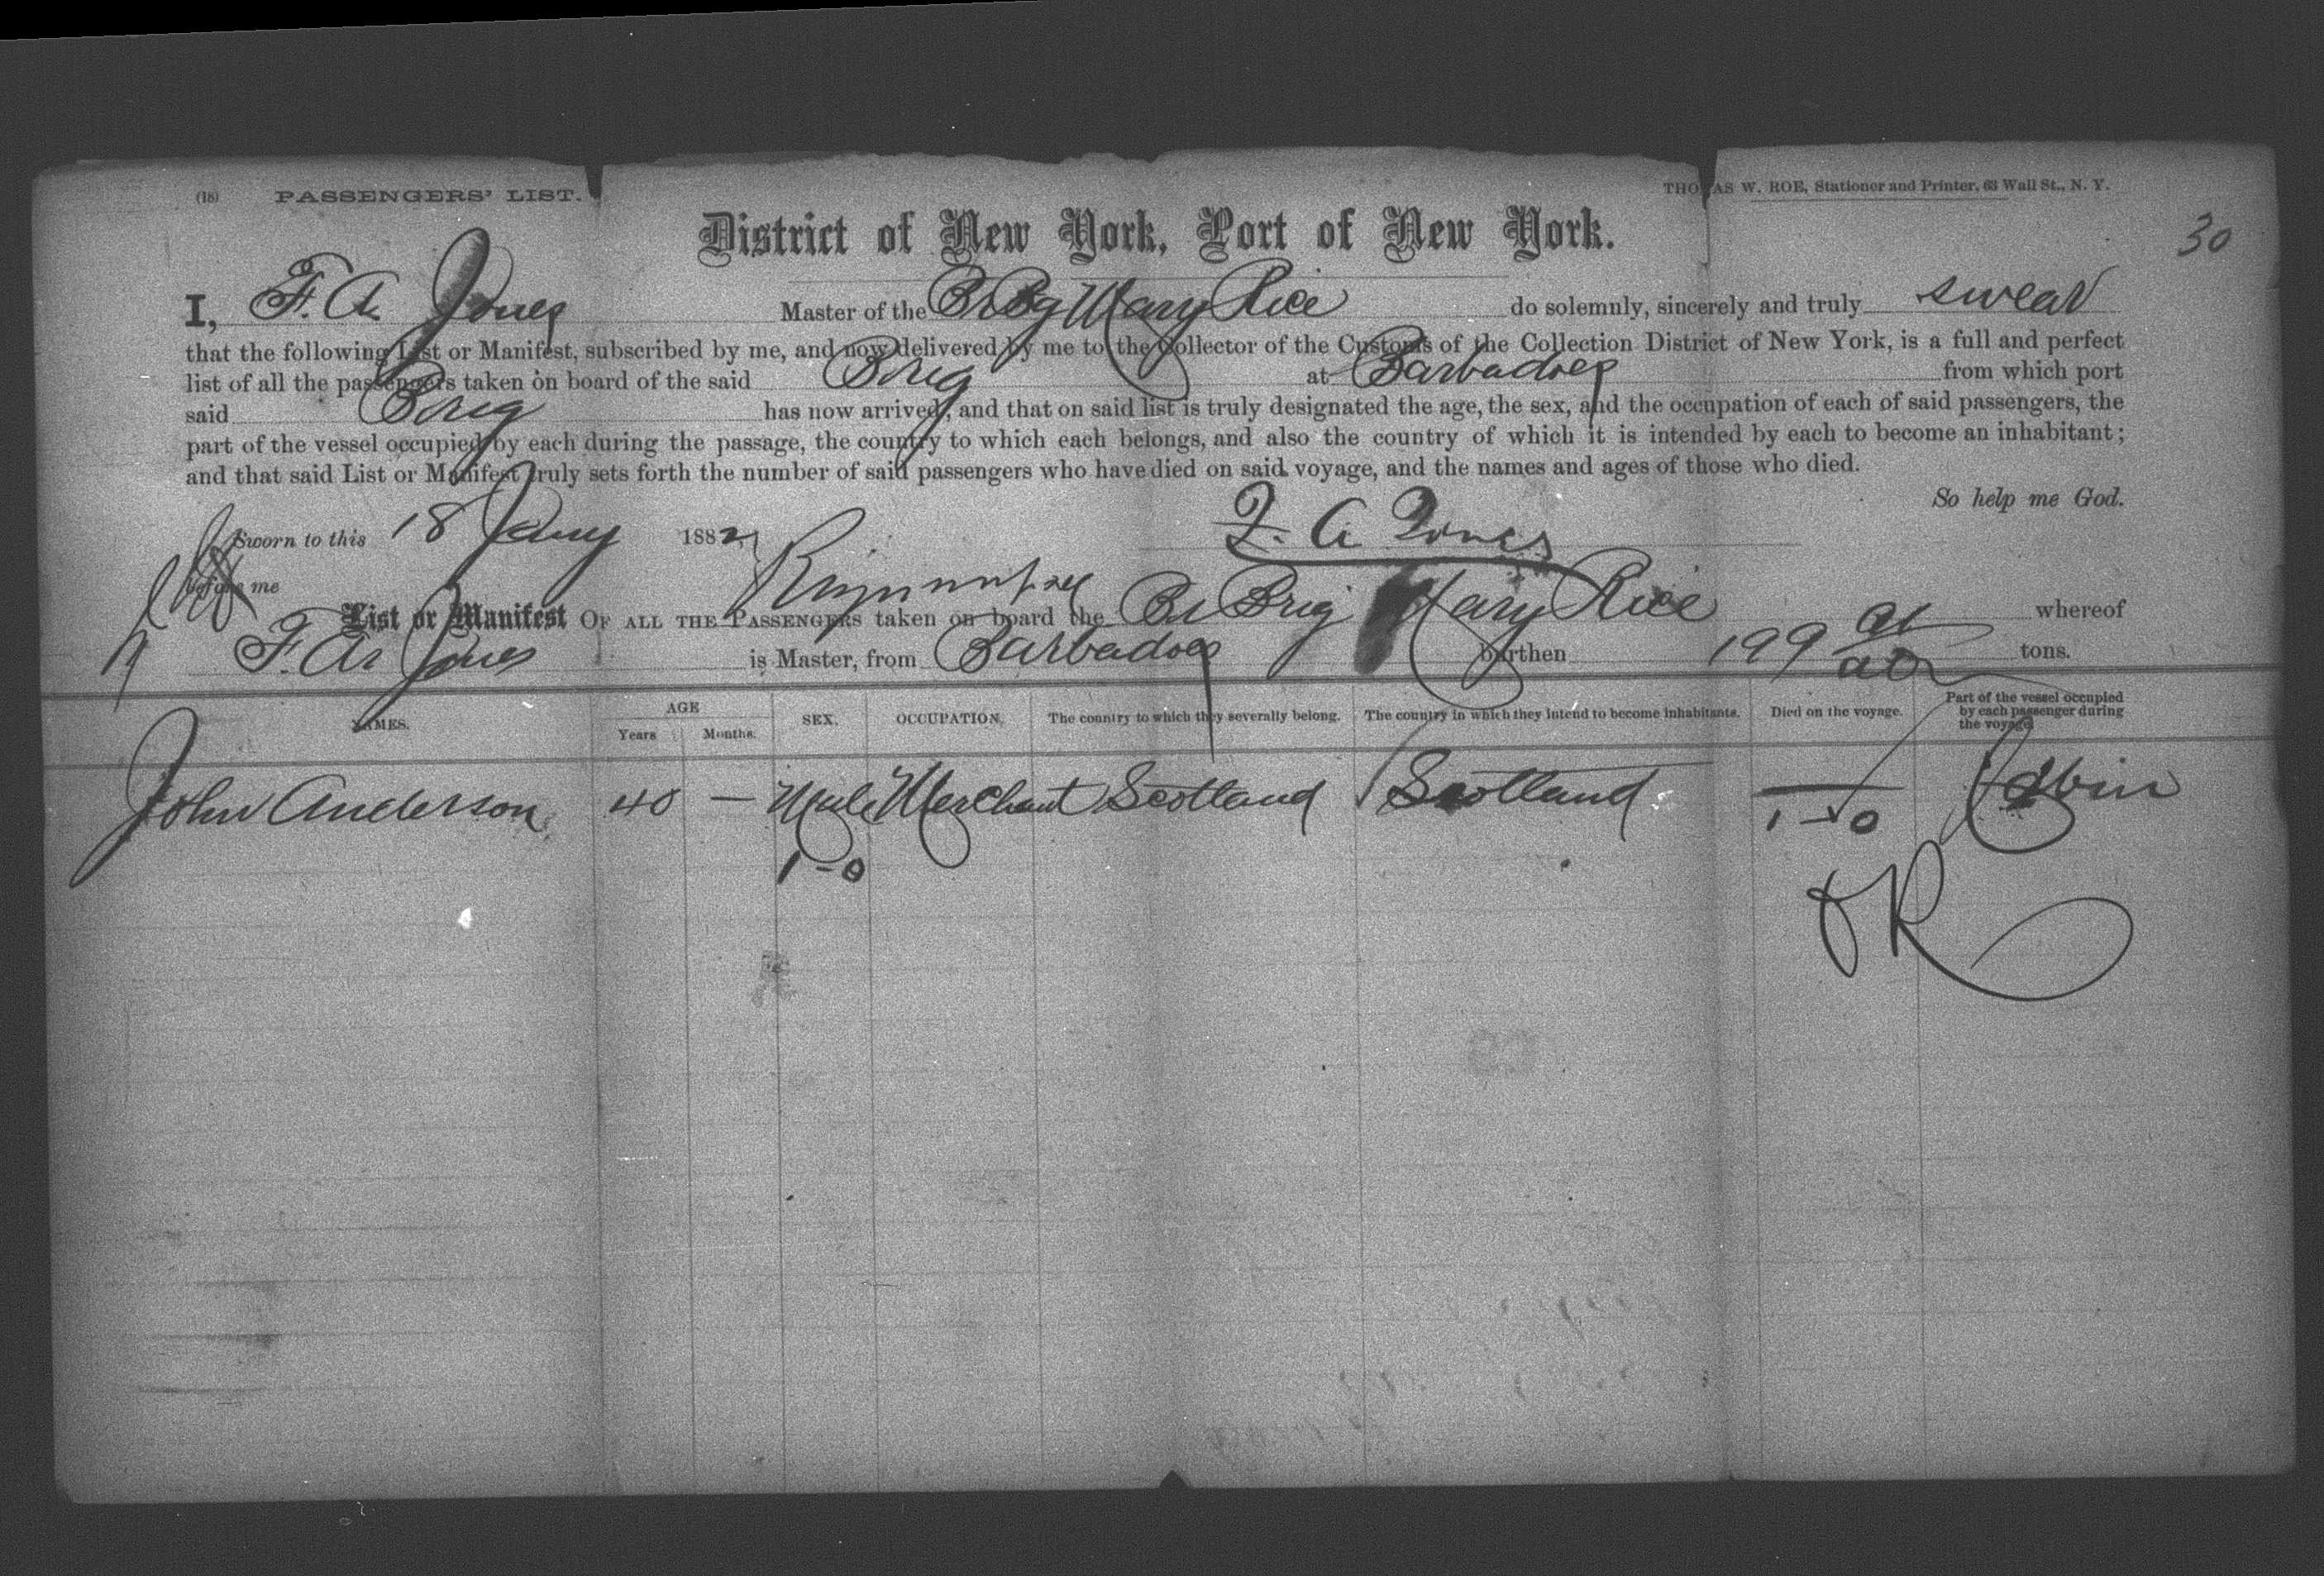 (18) PASSENGERS' LIST. THOMAS W. ROE, Stationer and Printer, 63 Wall St., N. Y.
30
District of New York, Port of New York.
I, F. A. Jones Master of the Br Bg Mary Rice do solemnly, sincerely and truly swear
that the following List or Manifest, subscribed by me, and now delivered by me to the Collector of the Customs of the Collection District of New York, is a full and perfect
list of all the passengers taken on board of the said Brig at Barbadoes from which port
said Brig has now arrived, and that on said list is truly designated the age, the sex, and the occupation of each of said passengers, the
part of the vessel occupied by each during the passage, the country to which each belongs, and also the country of which it is intended by each to become an inhabitant;
and that said List or Manifest truly sets forth the number of said passengers who have died on said voyage, and the names and ages of those who died.
So help me God.
Sworn to this 18 Jany 1882 F. A Jones
before me
List or Manifest OF ALL THE PASSENGERS taken on board the Br Brig Mary Rice whereof
F. A. Jones is Master, from Barbadoes burthen 199 tons.
NAMES. AGE Years Months. SEX. OCCUPATION. The country to which they severally belong. The country in which they intend to become inhabitants. Died on the voyage. Part of the vessel occupied by each passenger during the voyage
John Anderson 40 — Male Merchant Scotland Scotland — Cabin
1-0 1-0
OK